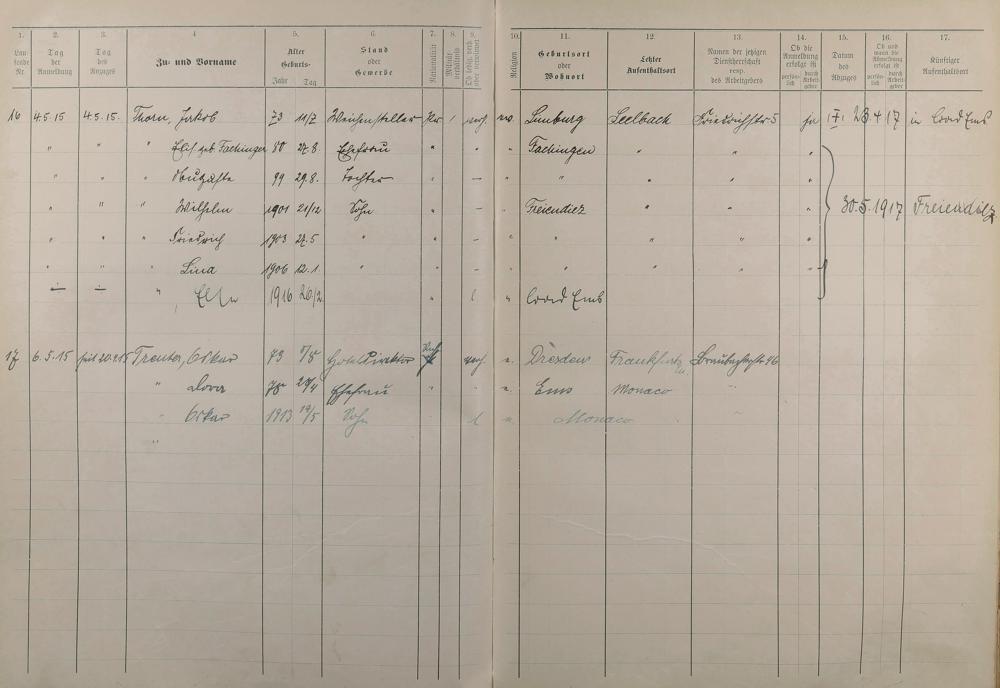 1. 2. 3. 4 5. 6. 7. 8. 9. 10. 11. 12. 13. 14. 15. 16. 17.
Lau-
fende
Nr.
Tag
der
Anmeldung
Tag
des
Anzuges
Zu- und Vorname
Alter
Geburts-
Jahr Tag
Stand
oder
Gewerbe
Nationalität
Militär-
verhältnis
Ob ledig, verh.
oder verwitwet
Religion
Geburtsort
oder
Wohnort
Letzter
Aufenthaltsort
Namen der jetzigen
Dienstherrschaft
resp.
des Arbeitgebers
Ob die
Anmeldung
erfolgt ist
persön-
lich
durch
Arbeit
geber
Datum
des
Abzuges
Ob und
wann die
Abmeldung
erfolgt ist
persön-
lich
durch
Arbeit
geber
Künftiger
Aufenthaltsort
16 4.5.15 4.5.15. Thorn, Jakob 73 11/7 Weichensteller verh. Limburg Seelbach Friedrichstr 5 ja 23 4 17 in Bad Ems
" " " Elis geb Fachinger 80 27.8. Ehefrau " " " Fachingen " " "
" " " Auguste 99 29.8. Tochter " — " " " " "
" " " Wilhelm 1901 21/12 Sohn " — " Freiendiez " " " 30.5.1917 Freiendiez
" " " Friedrich 1903 27.5 " " — " " " " "
" " " Lina 1906 12.1. " " — " " " " "
— — " Else 1916 26/2 " l " Bad Ems
17 6.5.15 seit 20.4.15 Treuter, Oskar 73 7/5 Hotel Direktor verh. e. Dresden Frankfurt Braubachstr 46
" Dora 78 29/4 Ehefrau " " e. Ems Monaco "
" Oskar 1913 19/5 Sohn l e. Monaco "
"